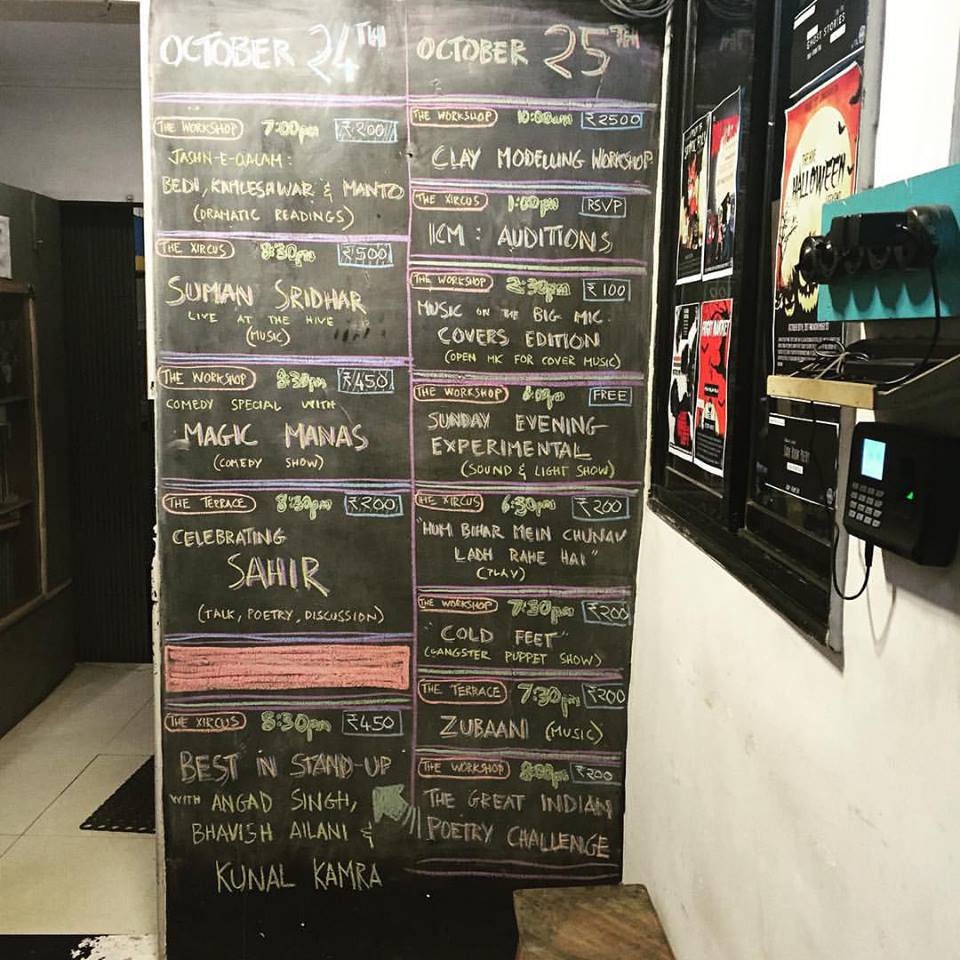 OCTOBER 24TH
THE WORKSHOP 7:00pm ₹200
JASHN-E-QALAM:
BEDI, KAMLESHWAR & MANTO
(DRAMATIC READINGS)
THE XIRCUS 8:30pm ₹500
SUMAN SRIDHAR
LIVE AT THE HIVE
(MUSIC)
THE WORKSHOP 8:30pm ₹450
COMEDY SPECIAL WITH
MAGIC MANAS
(COMEDY SHOW)
THE TERRACE 8:30pm ₹200
CELEBRATING
SAHIR
(TALK, POETRY, DISCUSSION)
THE XIRCUS 8:30pm ₹450
BEST IN STAND-UP
WITH ANGAD SINGH,
BHAVISH AILANI &
KUNAL KAMRA
OCTOBER 25TH
THE WORKSHOP 10:00am ₹2500
CLAY MODELLING WORKSHOP
THE XIRCUS 1:00pm RSVP
ICM: AUDITIONS
THE WORKSHOP 2:30pm ₹100
MUSIC ON THE BIG MIC:
COVERS EDITION
(OPEN MIC FOR COVER MUSIC)
THE WORKSHOP 6:00pm FREE
SUNDAY EVENING
EXPERIMENTAL
(SOUND & LIGHT SHOW)
THE XIRCUS 6:30pm ₹200
"HUM BIHAR MEIN CHUNAV
LADH RAHE HAI"
(PLAY)
THE WORKSHOP 7:30pm ₹200
"COLD FEET"
(GANGSTER PUPPET SHOW)
THE TERRACE 7:30pm ₹200
ZUBAANI (MUSIC)
THE WORKSHOP 8:00pm ₹200
THE GREAT INDIAN
POETRY CHALLENGE
GHOST STORIES
HALLOWEEN